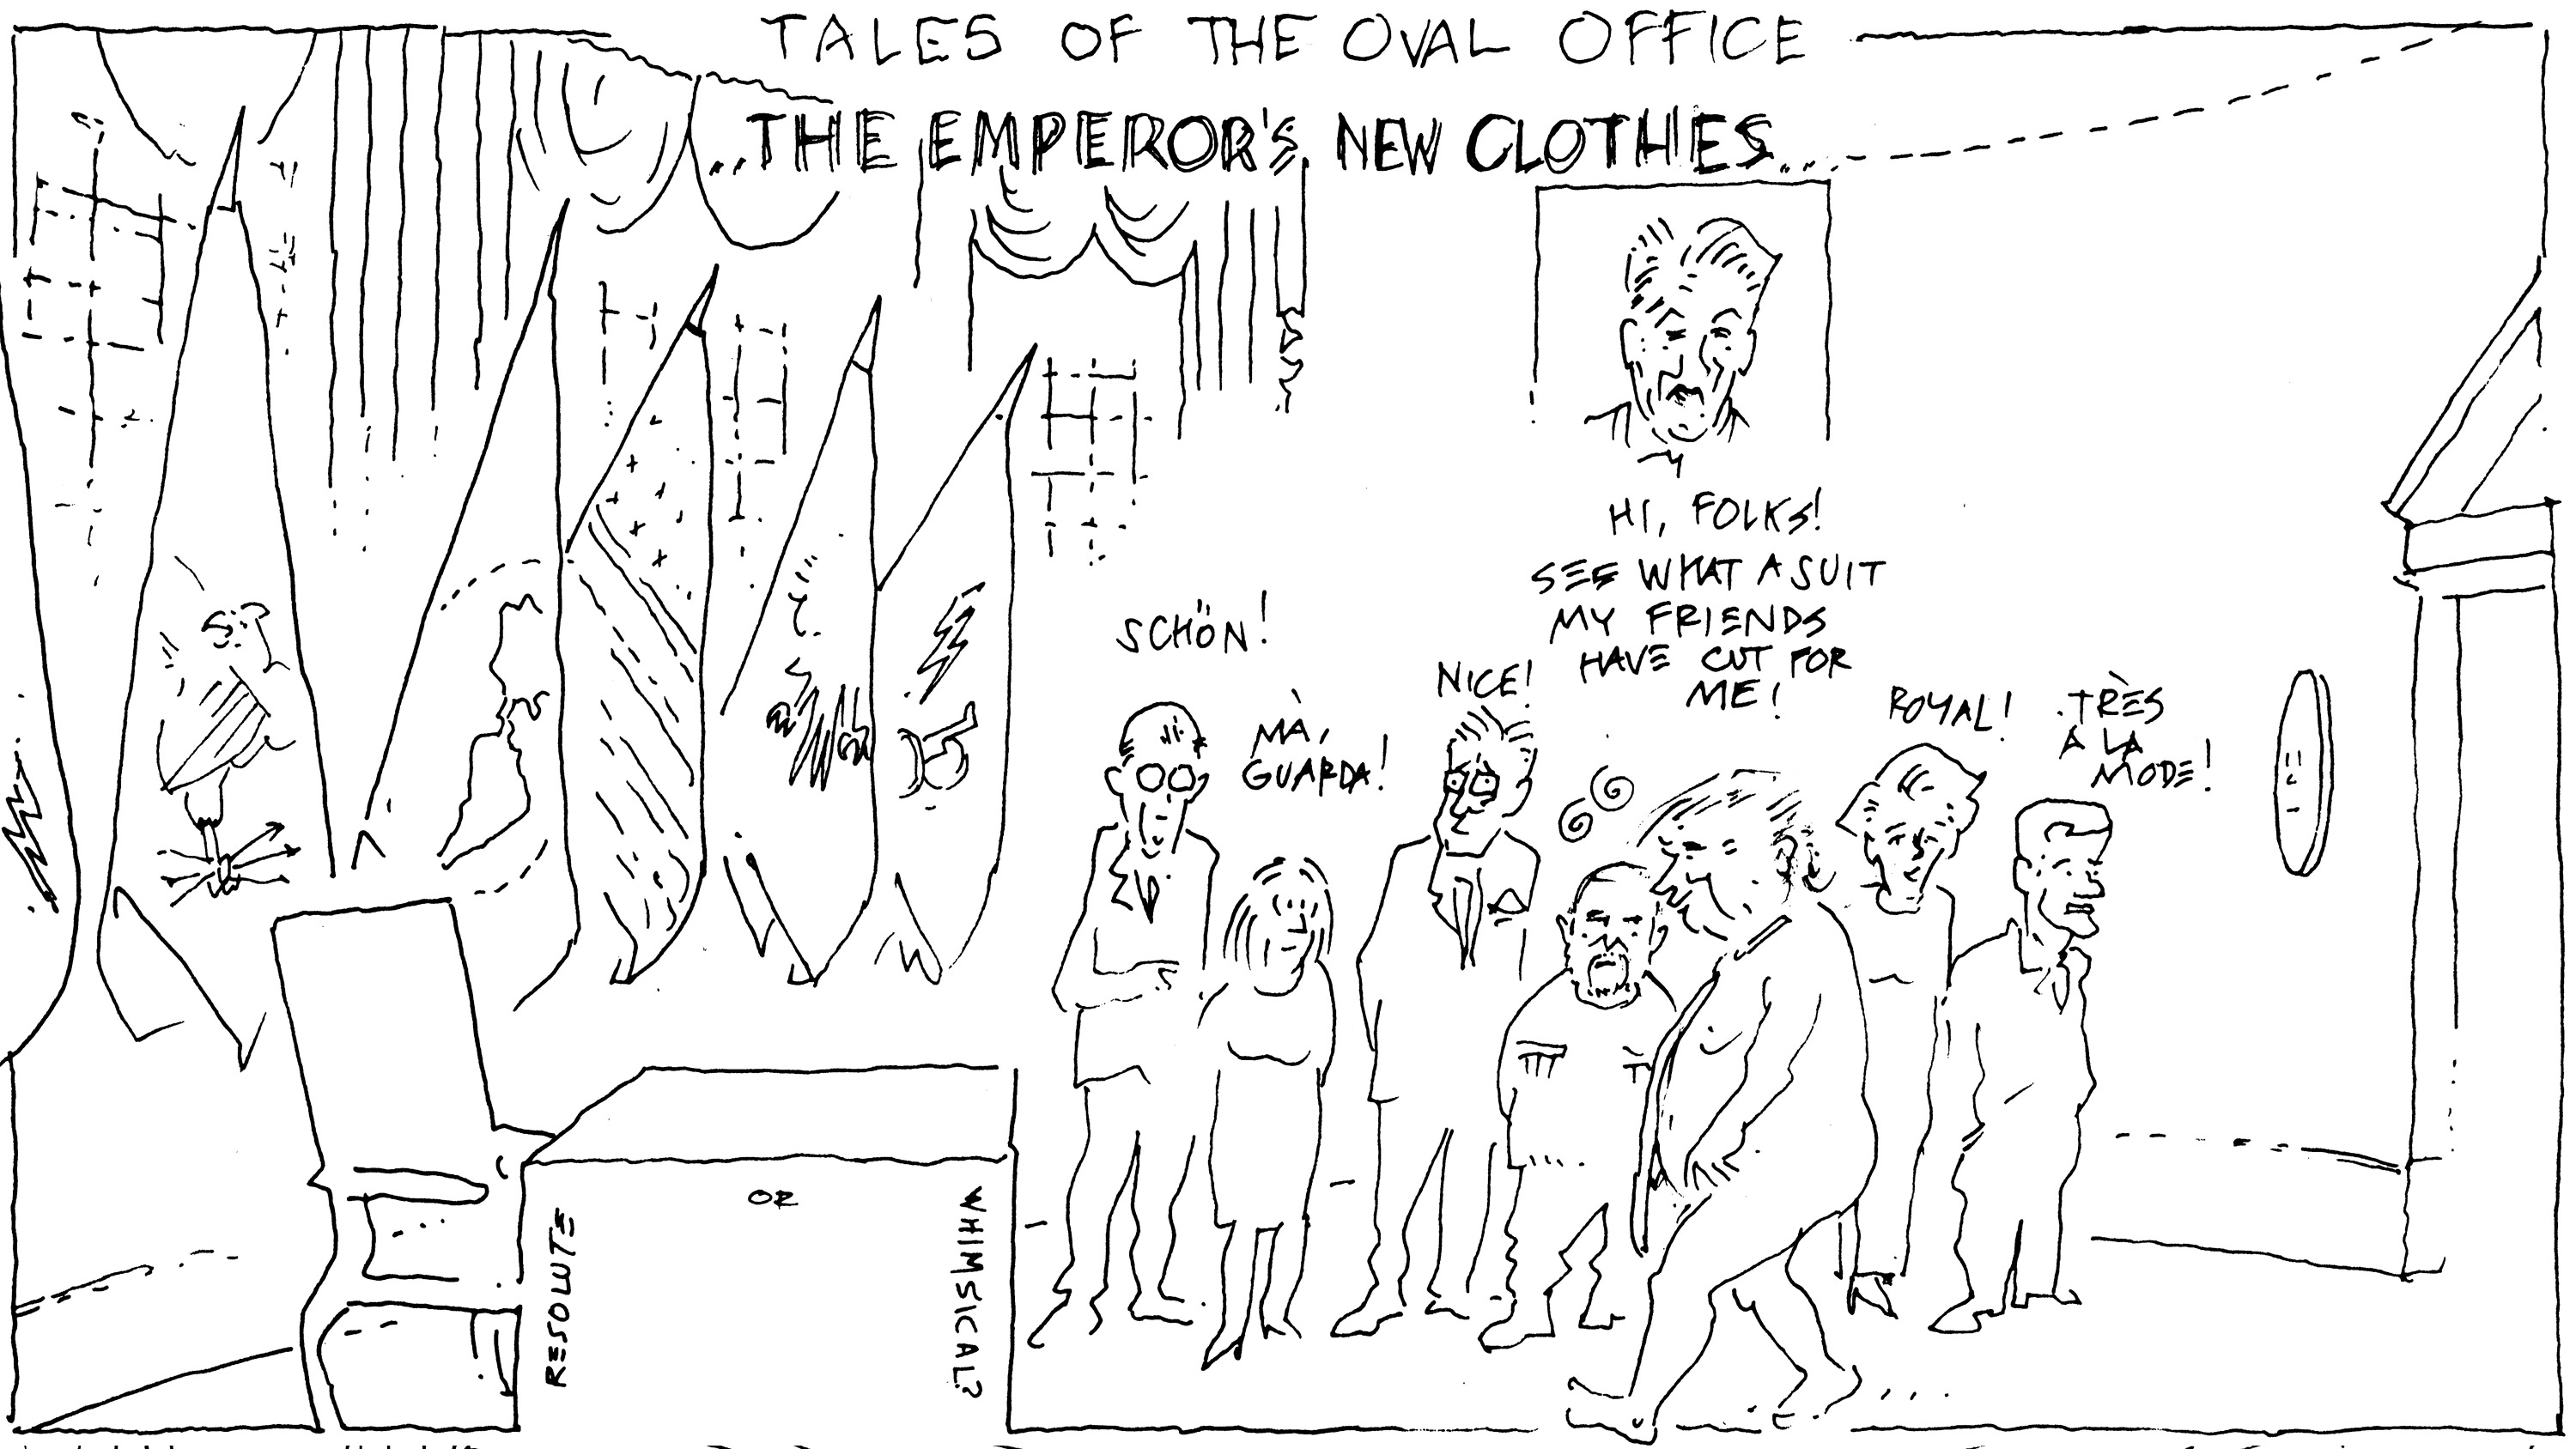 TALES OF THE OVAL OFFICE
..THE EMPEROR'S NEW CLOTHES...
HI, FOLKS!
SEE WHAT A SUIT
MY FRIENDS
HAVE CUT FOR
ME!
SCHÖN!
MÀ,
GUARDA!
NICE!
ROYAL!
TRÈS
A LA
MODE!
RESOLUTE
OR
WHIMSICAL?